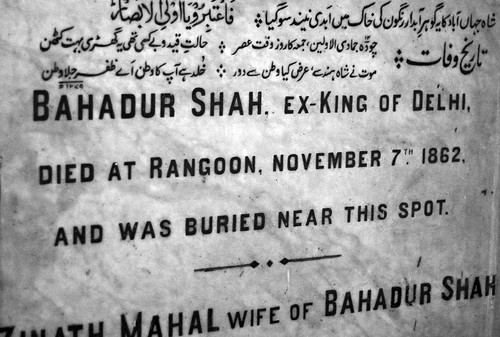 فَاعْتَبِرُوْ يَا اُولِي الْاَبْصَار
شاہ جہاں آباد کا یہ گوہرِ آبدار رنگون کی خاک میں ابدی نیند سو گیا
تاریخ وفات
چودہ جمادی الاولیٰ بین جمعہ کا روز وقت عصر
حالتِ قید و بے کسی تھی یہ گھڑی بہت کٹھن
موت نے شاہِ ہند سے عرض کیا وطن سے دور
خُلد ہے آپ کا وطن اَے ظفر جلا وطن
BAHADUR SHAH, EX-KING OF DELHI,
DIED AT RANGOON, NOVEMBER 7TH 1862,
AND WAS BURIED NEAR THIS SPOT.
ZINATH MAHAL WIFE OF BAHADUR SHAH